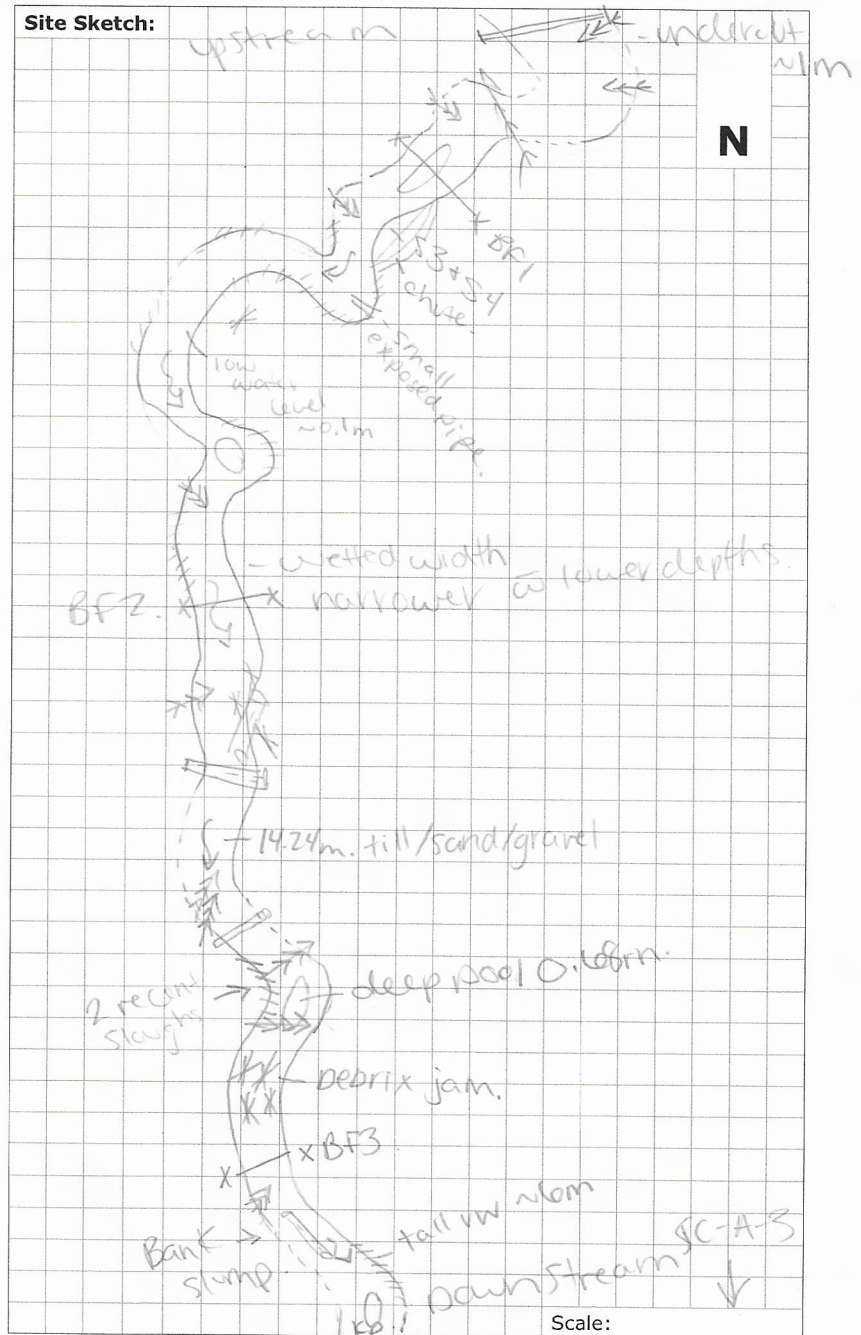 Site Sketch:
upstream
- undercut
~1m
N
BF1
S3 + S4
chute.
- small
exposed pipe.
low
water
level
~0.1m
- wetted width
narrower w̄ lower depths.
BF2.
14.24m. till/sand/gravel
deep pool 0.68m.
2 recent
sloughs
Debrix jam.
BF3
tall vw ~6m
Bank
slump.
SC-A-3
Downstream
Scale: